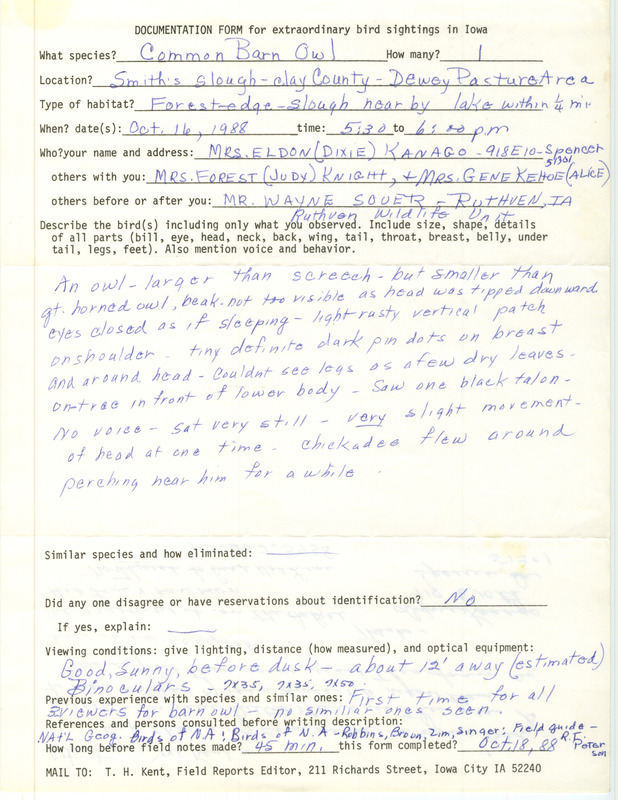 DOCUMENTATION FORM for extraordinary bird sightings in Iowa
What species? Common Barn Owl How many? 1
Location? Smith's Slough - Clay County - Dewey Pasture Area
Type of habitat? Forest-edge - slough near by lake within 1/4 mi.
When? date(s): Oct. 16, 1988 time: 5:30 to 6:00 p.m
Who? your name and address: MRS. ELDON (DIXIE) KANAGO - 918 E 10 - Spencer 51301
others with you: MRS. FOREST (JUDY) KNIGHT, + MRS. GENE KEHOE (ALICE)
others before or after you: MR. WAYNE SOUER - RUTHVEN, IA
Ruthven Wildlife Unit
Describe the bird(s) including only what you observed. Include size, shape, details
of all parts (bill, eye, head, neck, back, wing, tail, throat, breast, belly, under
tail, legs, feet). Also mention voice and behavior.
An owl - larger than screech - but smaller than
gt. horned owl, beak - not too visible as head was tipped downward
eyes closed as if sleeping - light rusty vertical patch
on shoulder - tiny definite dark pin dots on breast
and around head - Couldnt see legs as a few dry leaves -
on tree in front of lower body - Saw one black talon -
No voice - Sat very still - very slight movement -
of head at one time - chickadee flew around
perching near him for a while.
Similar species and how eliminated:
Did any one disagree or have reservations about identification? No
If yes, explain:
Viewing conditions: give lighting, distance (how measured), and optical equipment:
Good, Sunny, before dusk - about 12' away (estimated)
Binoculars - 7x35, 7x35, 7x50.
Previous experience with species and similar ones: First time for all
3 viewers for barn owl - no similiar ones seen.
References and persons consulted before writing description:
NAT'L Geog. Birds of N.A; Birds of N.A - Robbins, Brown, Zim, Singer; Field guide - R.T. Peterson
How long before field notes made? 45 min. this form completed? Oct 18, 88
MAIL TO: T. H. Kent, Field Reports Editor, 211 Richards Street, Iowa City IA 52240